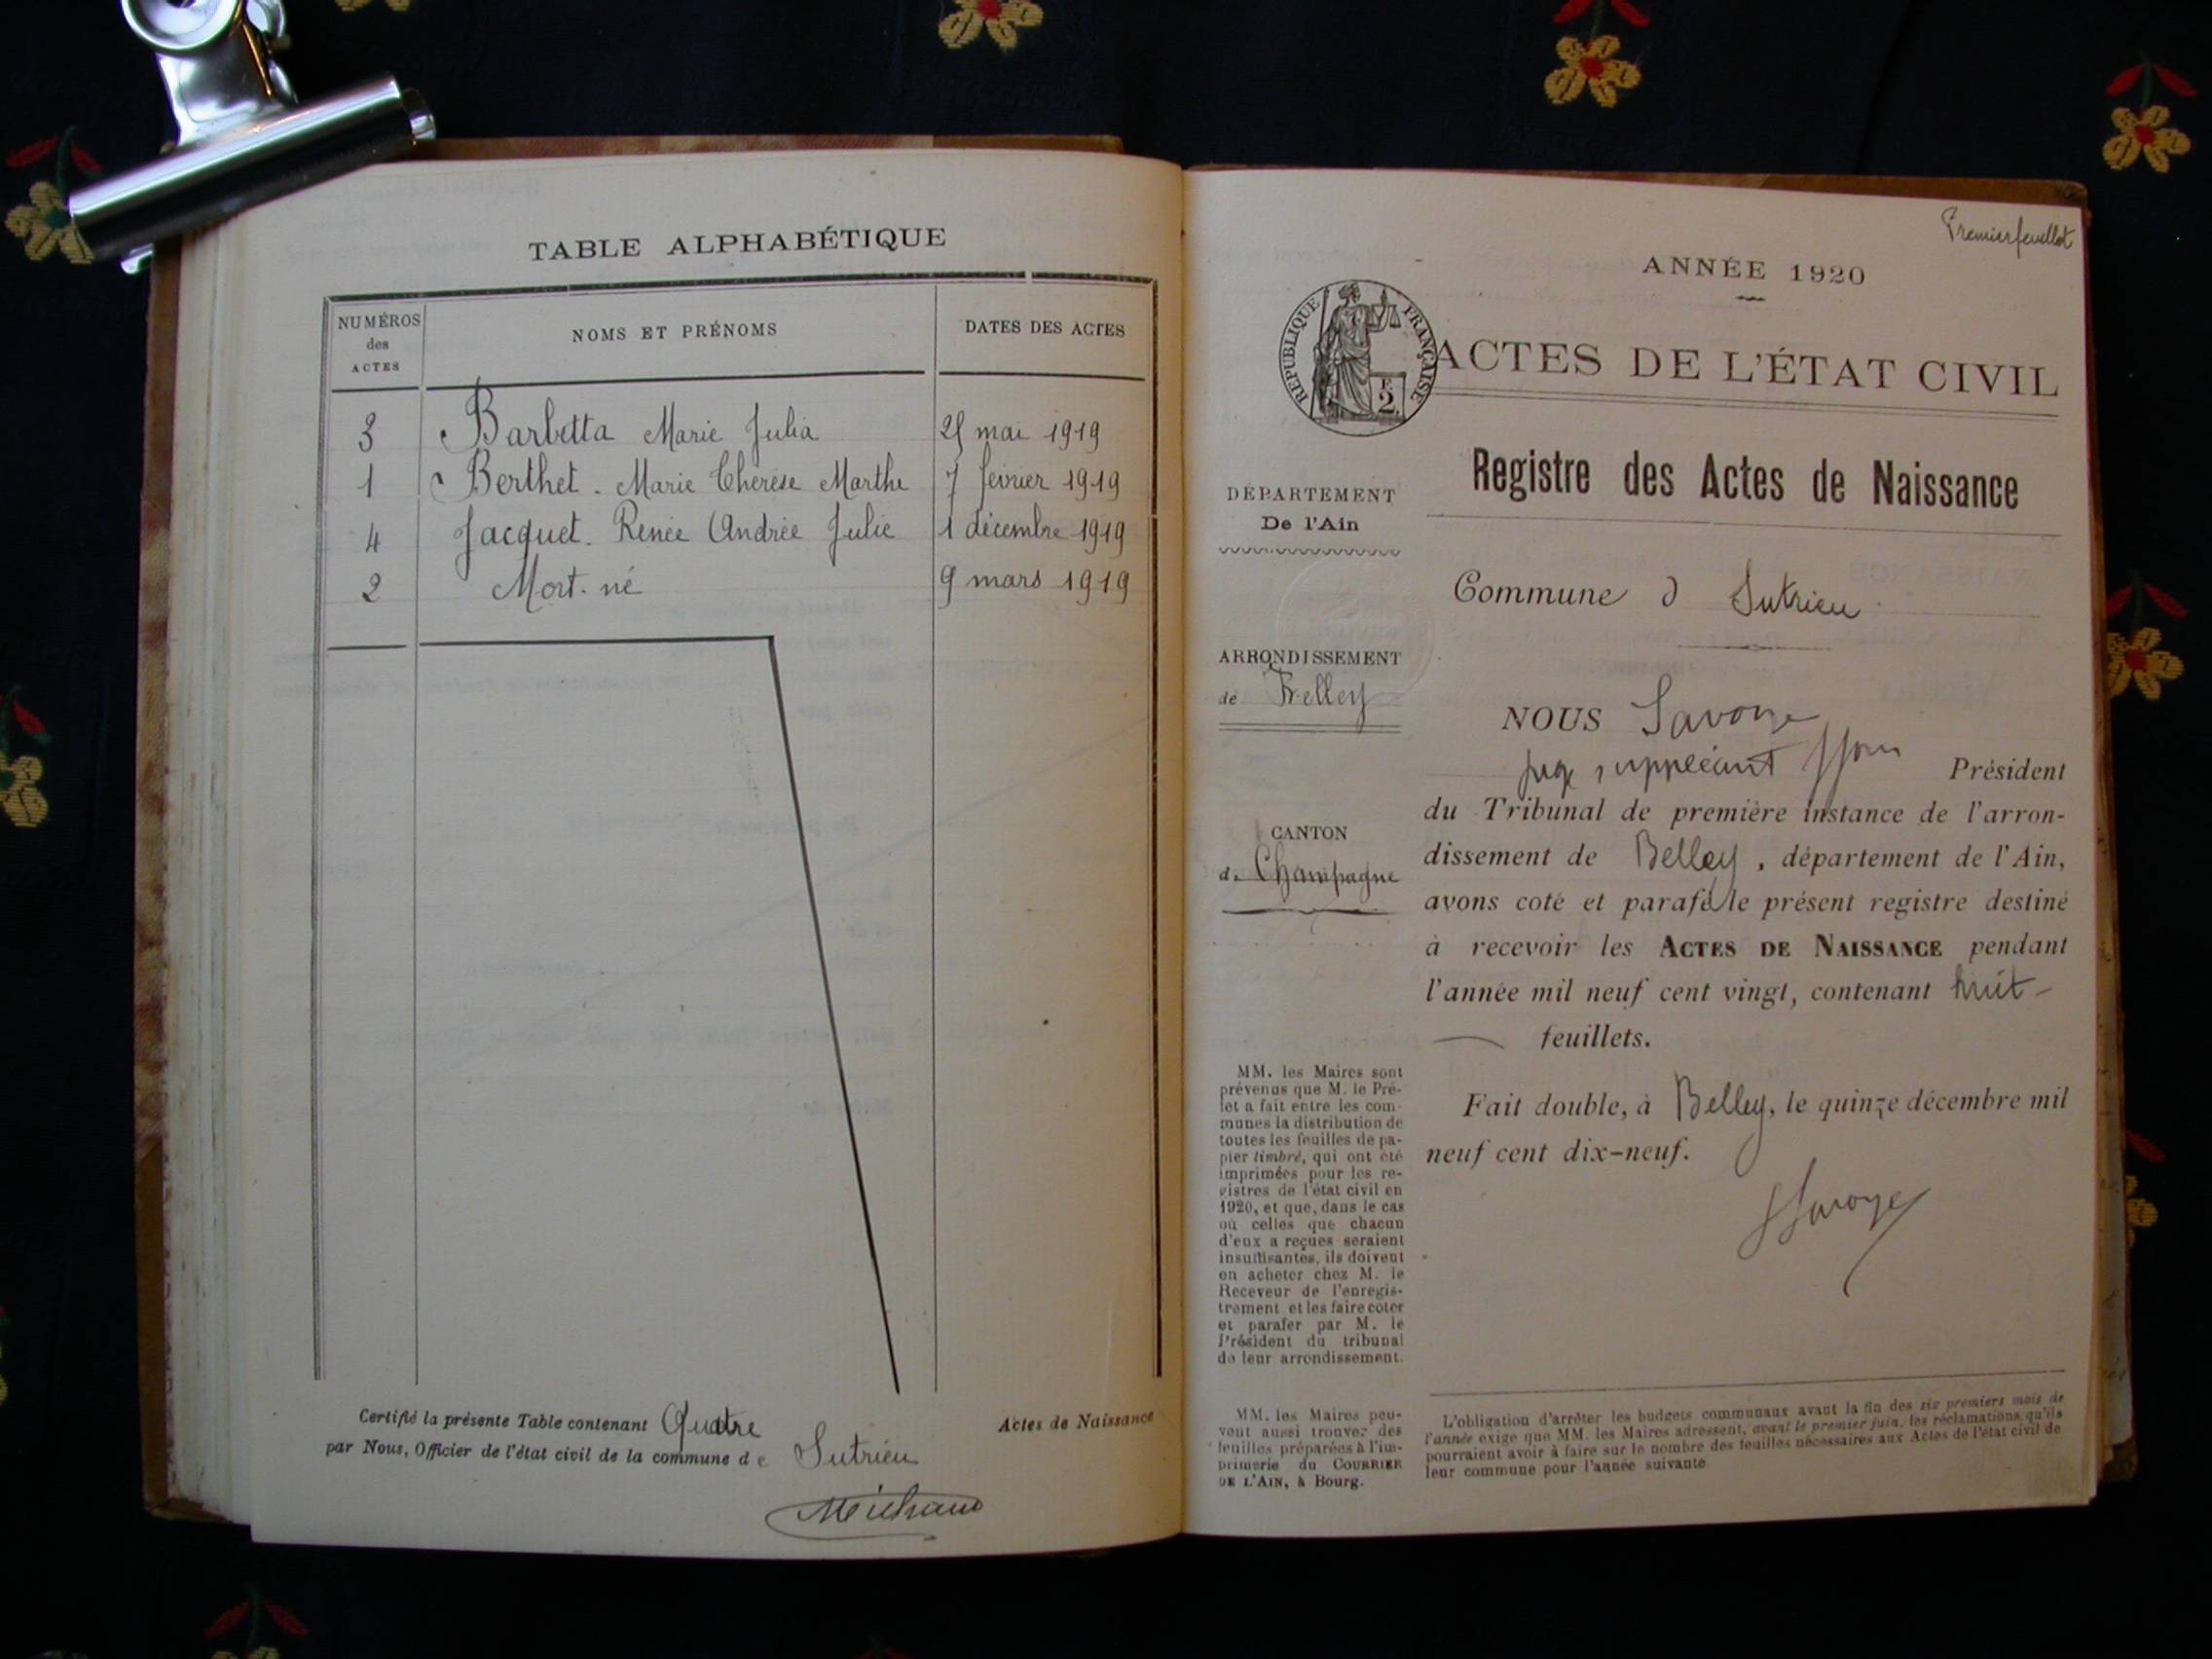 TABLE ALPHABÉTIQUE
NUMÉROS
des
ACTES
NOMS ET PRÉNOMS
DATES DES ACTES
3 Barbetta Marie Julia mai 1919
1 Berthet. Marie Thérèse Marthe 7 février 1919
4 Jacquet. Renée Andrée Julie 1 décembre 1919
2 Mort-né 9 mars 1919
Certifié la présente Table contenant Quatre Actes de Naissance
par Nous, Officier de l'état civil de la commune de Sutrieu
Premier feuillet
ANNÉE 1920
RÉPUBLIQUE FRANÇAISE
2
ACTES DE L'ÉTAT CIVIL
Registre des Actes de Naissance
DÉPARTEMENT
De l'Ain
Commune d Sutrieu
ARRONDISSEMENT
de Belley
CANTON
de Champagne
NOUS Savoye
juge suppléant Président
du Tribunal de première instance de l'arron-
dissement de Belley, département de l'Ain,
avons coté et parafé le présent registre destiné
à recevoir les ACTES DE NAISSANCE pendant
l'année mil neuf cent vingt, contenant huit
feuillets.
Fait double, à Belley, le quinze décembre mil
neuf cent dix-neuf.
Savoye
MM. les Maires sont
prévenus que M. le Pré-
fet a fait entre les com-
munes la distribution de
toutes les feuilles de pa-
pier timbré, qui ont été
imprimées pour les re-
gistres de l'état civil en
1920, et que, dans le cas
où celles que chacun
d'eux a reçues seraient
insuffisantes, ils doivent
en acheter chez M. le
Receveur de l'enregis-
trement et les faire coter
et parafer par M. le
Président du tribunal
de leur arrondissement.
MM. les Maires peu-
vent aussi trouver des
feuilles préparées à l'im-
primerie du COURRIER
DE L'AIN, à Bourg.
L'obligation d'arrêter les budgets communaux avant la fin des six premiers mois de
l'année exige que MM. les Maires adressent, avant le premier juin, les réclamations qu'ils
pourraient avoir à faire sur le nombre des feuilles nécessaires aux Actes de l'état civil de
leur commune pour l'année suivante.